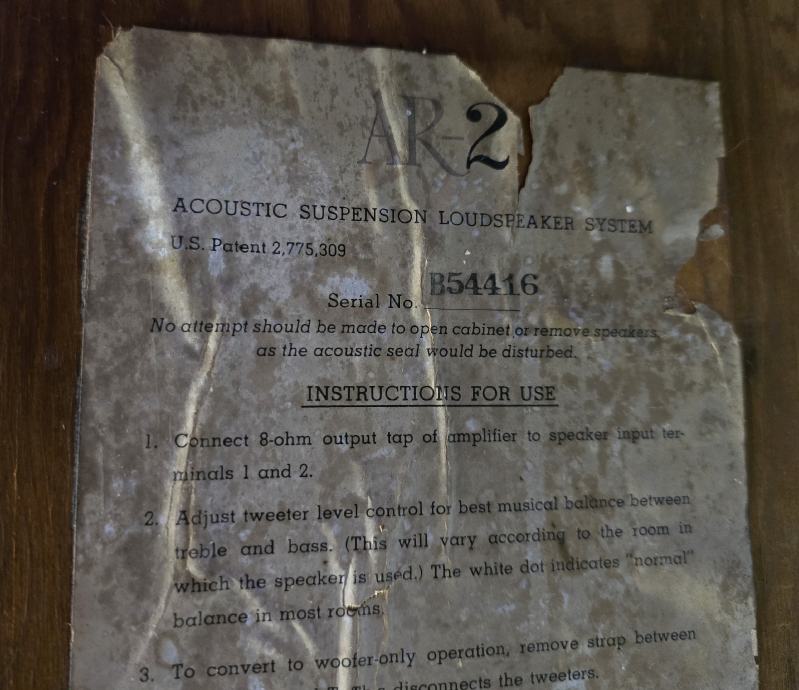 AR-2
ACOUSTIC SUSPENSION LOUDSPEAKER SYSTEM
U.S. Patent 2,775,309
Serial No. B54416
No attempt should be made to open cabinet or remove speakers,
as the acoustic seal would be disturbed.
INSTRUCTIONS FOR USE
1. Connect 8-ohm output tap of amplifier to speaker input ter-
minals 1 and 2.
2. Adjust tweeter level control for best musical balance between
treble and bass. (This will vary according to the room in
which the speaker is used.) The white dot indicates "normal"
balance in most rooms.
3. To convert to woofer-only operation, remove strap between
T. This disconnects the tweeters.